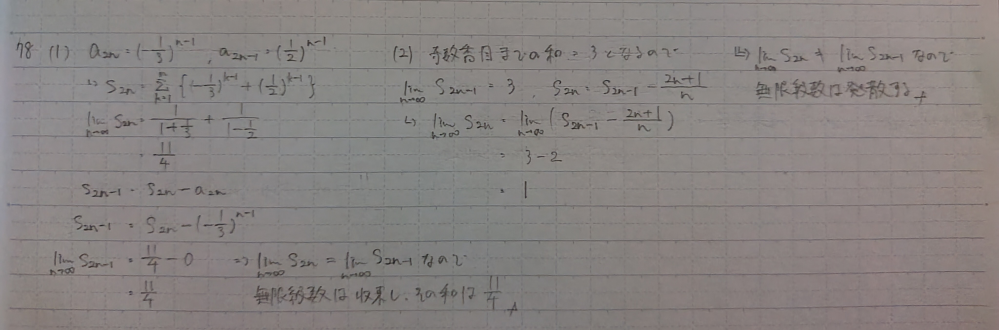 78 (1) a_{2n} = (-1/3)^{n-1}, a_{2n-1} = (1/2)^{n-1}
↳ S_{2n} = Σ_{k=1}^{n} {(-1/3)^{k-1} + (1/2)^{k-1}}
lim_{n→∞} S_{2n} = 1/(1+1/3) + 1/(1-1/2)
= 11/4
S_{2n-1} = S_{2n} - a_{2n}
S_{2n-1} = S_{2n} - (-1/3)^{n-1}
lim_{n→∞} S_{2n-1} = 11/4 - 0
= 11/4
⇒ lim_{n→∞} S_{2n} = lim_{n→∞} S_{2n-1} なので
無限級数は収束し、その和は 11/4
(2) 奇数番目までの和 = 3 となるので
lim_{n→∞} S_{2n-1} = 3, S_{2n} = S_{2n-1} - (2n+1)/n
↳ lim_{n→∞} S_{2n} = lim_{n→∞} (S_{2n-1} - (2n+1)/n)
= 3-2
= 1
↳ lim_{n→∞} S_{2n} ≠ lim_{n→∞} S_{2n-1} なので
無限級数は発散する